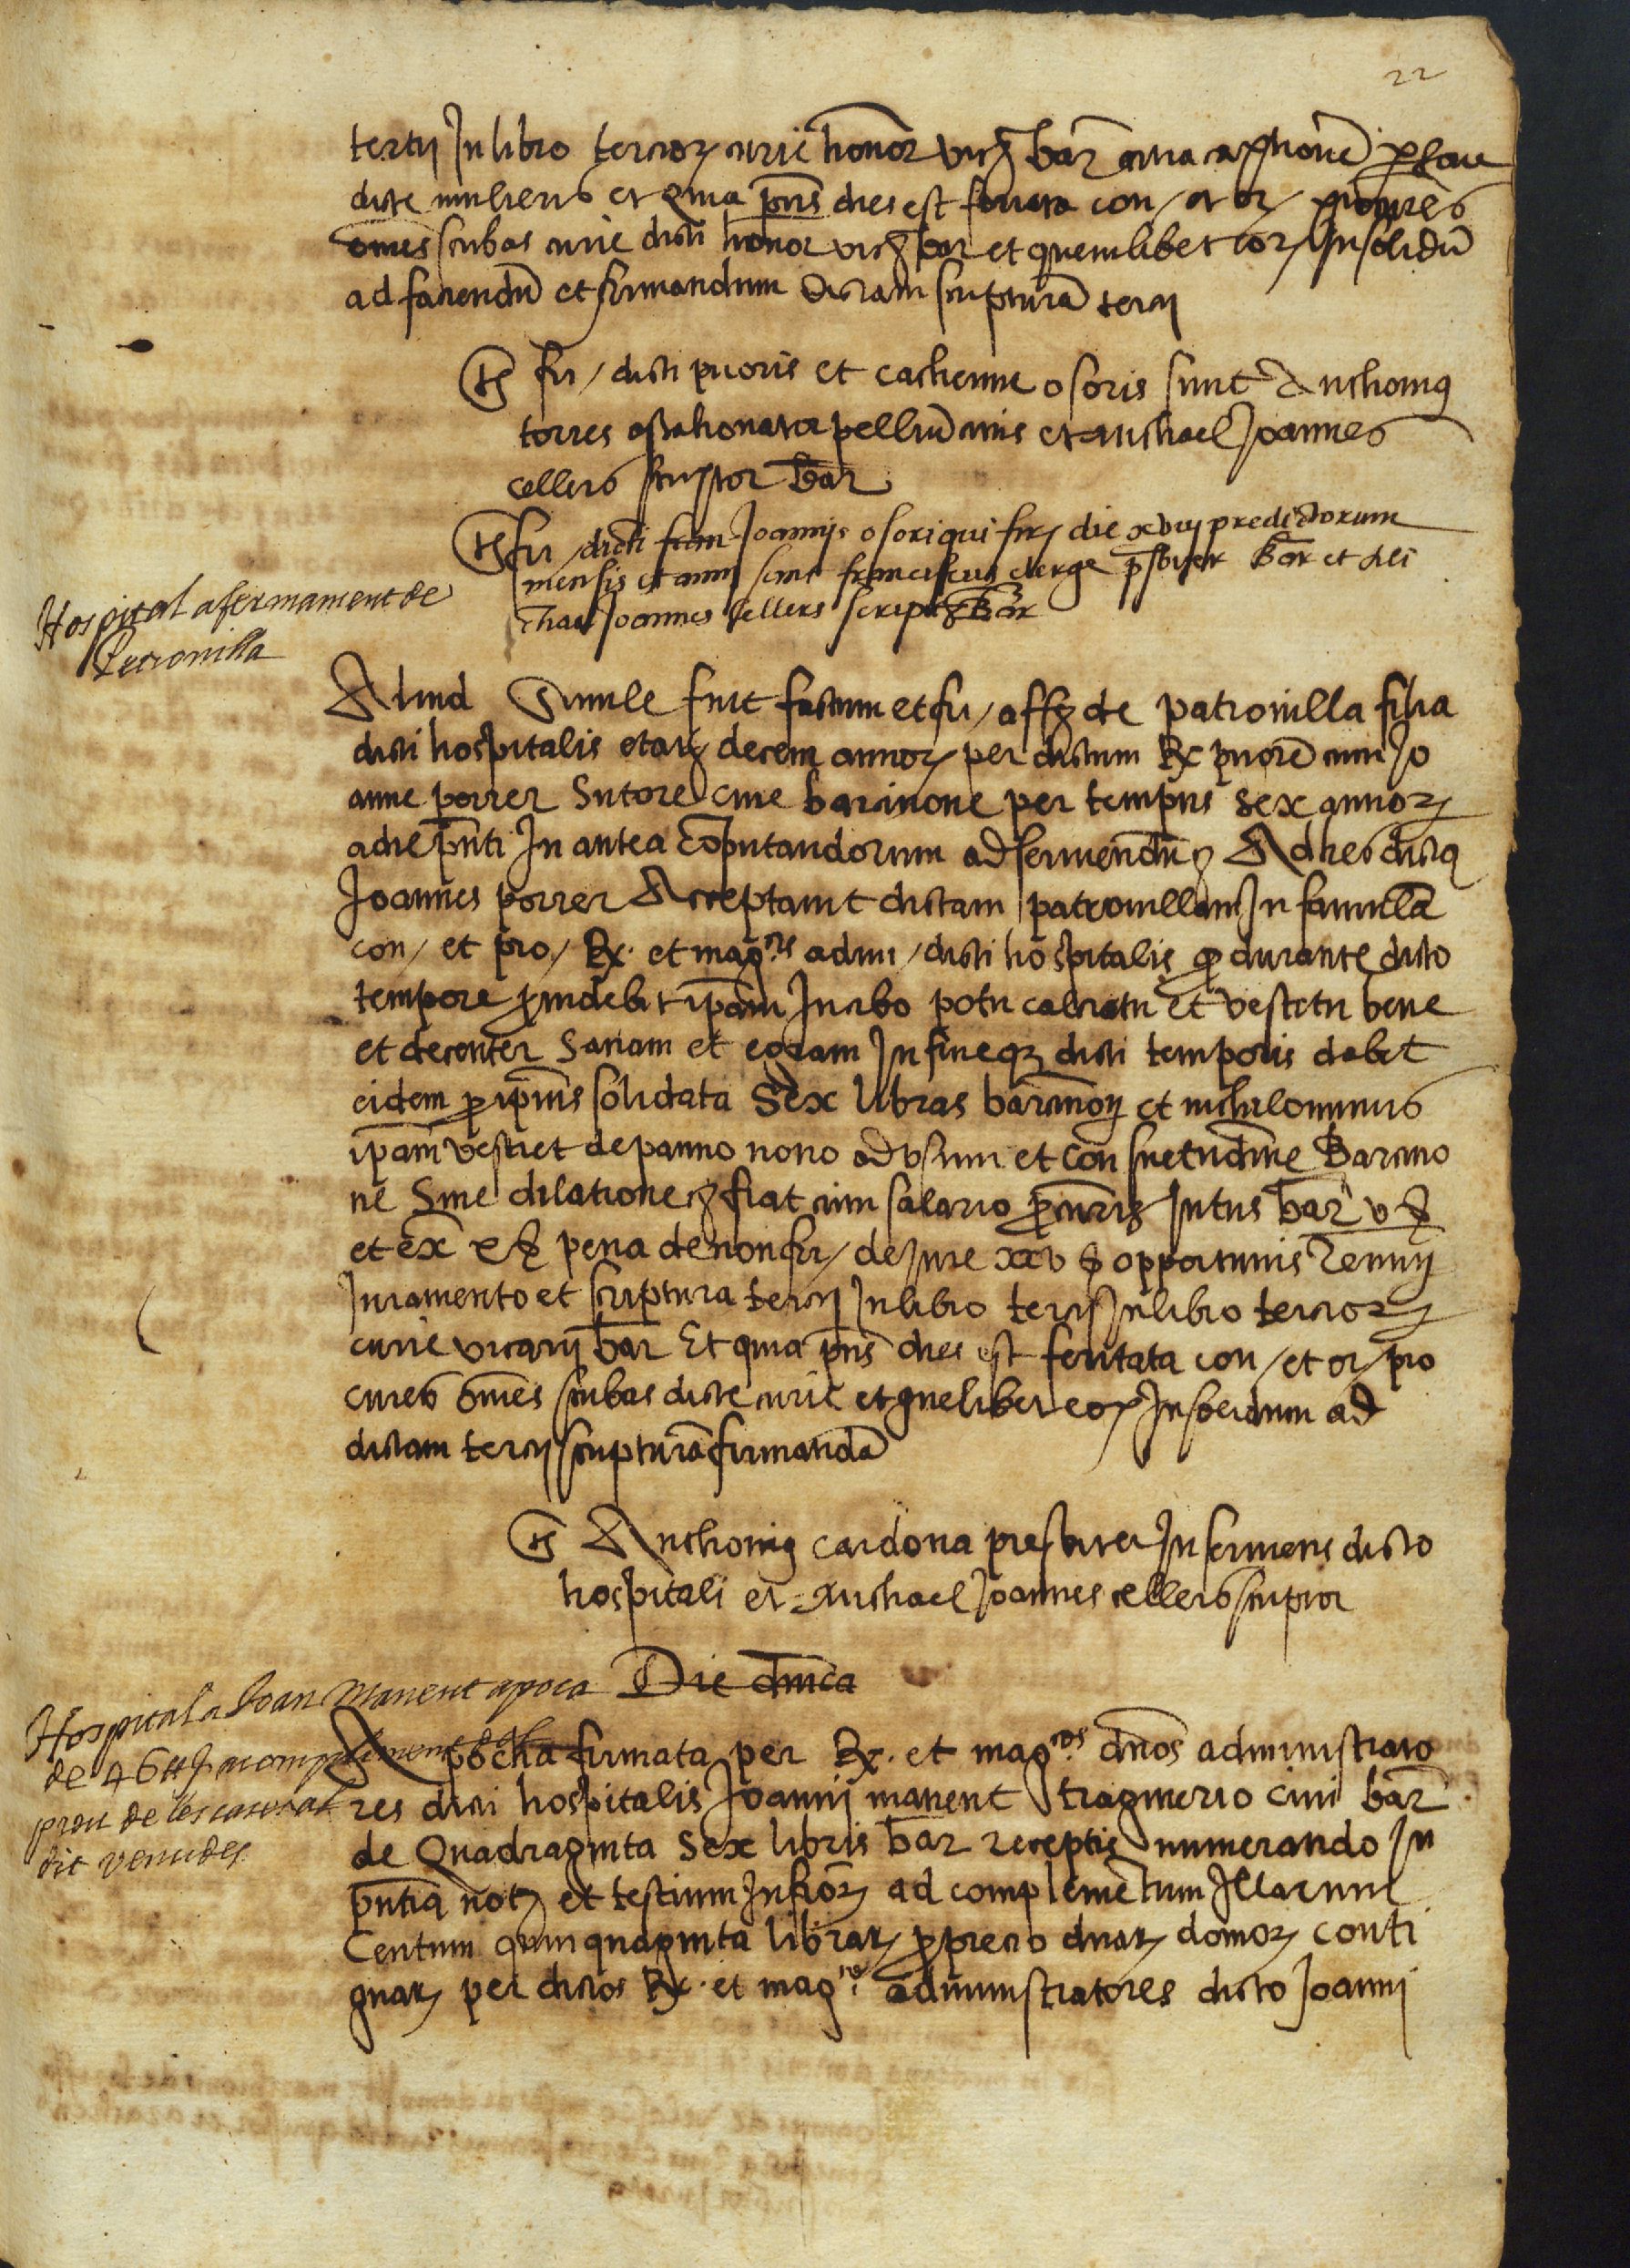 22
tertii In libro tercior curie honor vicz bar
dicte mulieris et Quia pns dies est feriata con / et or /
omes scribas curie dicti honor vicz bar et quemlibet eor Insolidu
ad faciendu et firmandum dictam scriptura tercii
ts fir / dicti prioris et catherine osoris sunt Anthonius
torres pelliu civis et Michael Joannes
cellers scriptor bar
ts fir / dicti Joannis osori qui fir die xviij predictorum
mensis et anni sunt franciscus clerge psbiter Bar et Mi
chael Joannes Cellers script Bar
Hospital afermament de
Petronilla
Aliud Simile fuit factum et fir / aff de patronilla filia
dicti hospitalis etatz decem annor per dictum Rx priore cum Jo
anne porrer Sutore cive barcinone per tempus sex annor
a die pnti In antea coputandorum ad serviendu Ad hec dictus
Joannes porrer Acceptavit dictam patronillam In famula
con / et pro / Rx. et mag.cis admi / dicti hospitalis q durante dicto
tempore providebit ipam In cibo potu calciatu et vestitu bene
et decenter Sanam et egram In fineqz dicti temporis dabit
eidem p ipius solidata Sex libras barcinon et nichilominus
ipam vestiet de panno novo ad usum et consuetudine Barcino
ne Sine dilatione fiat cum salario pcuris Intus bar v ß
et ex x ß pena de non fir / de Jure xxv ß opportunis Renun
Juramento et scriptura tercii In libro tercii In libro tercior
curie vicarii bar Et quia pns dies est feritata con / et or / pro
cures omes scribas dicte curie et quelibet eor Insolidum ad
dictam tercii scriptura firmanda
ts Anthonius cardona presbiter In serviens dicto
hospitali et Michael Joannes cellers scriptor
Die dnica
Hospital a Joan Manent apoca
de 46 ll a compliment del
preu de les cases al
dit venudes
Apocha firmata per Rx. et mag.cos dnos administrato
res dicti hospitalis Joanni manent traginerio civi bar
de Quadraginta Sex libris bar receptis numerando In
pntia not et testium Infror ad complemetum Illarum
Centum quinquaginta librar p precio duar domor conti
guar per dictos Rx. et mag.cos administratores dicto Joanni